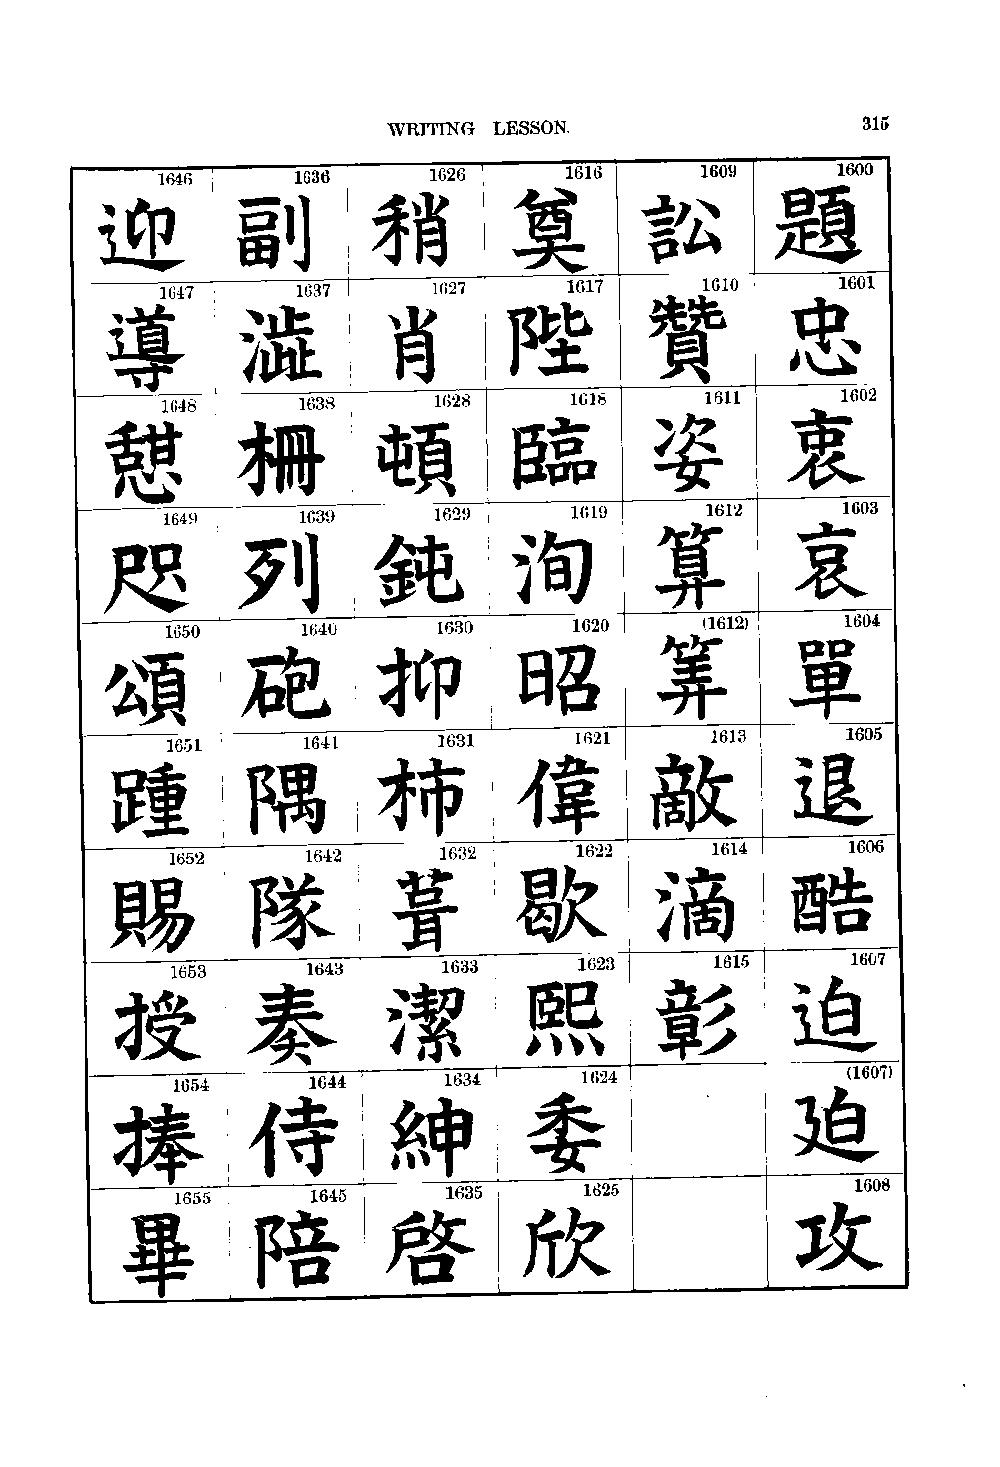 WRITING LESSON. 315
1646 1636 1626 1616 1609 1600
迎 副 稍 奠 訟 題
1647 1637 1627 1617 1610 1601
導 澁 肖 陛 贊 忠
1648 1638 1628 1618 1611 1602
憇 柵 頓 臨 姿 衷
1649 1639 1629 1619 1612 1603
咫 列 鈍 洵 算 哀
1650 1640 1630 1620 (1612) 1604
頌 砲 抑 昭 筭 單
1651 1641 1631 1621 1613 1605
踵 隅 柿 偉 敵 退
1652 1642 1632 1622 1614 1606
賜 隊 葺 歇 滴 酷
1653 1643 1633 1623 1615 1607
授 奏 潔 熙 彰 迫
1654 1644 1634 1624 (1607)
捧 侍 紳 委 廹
1655 1645 1635 1625 1608
畢 陪 啓 欣 攻